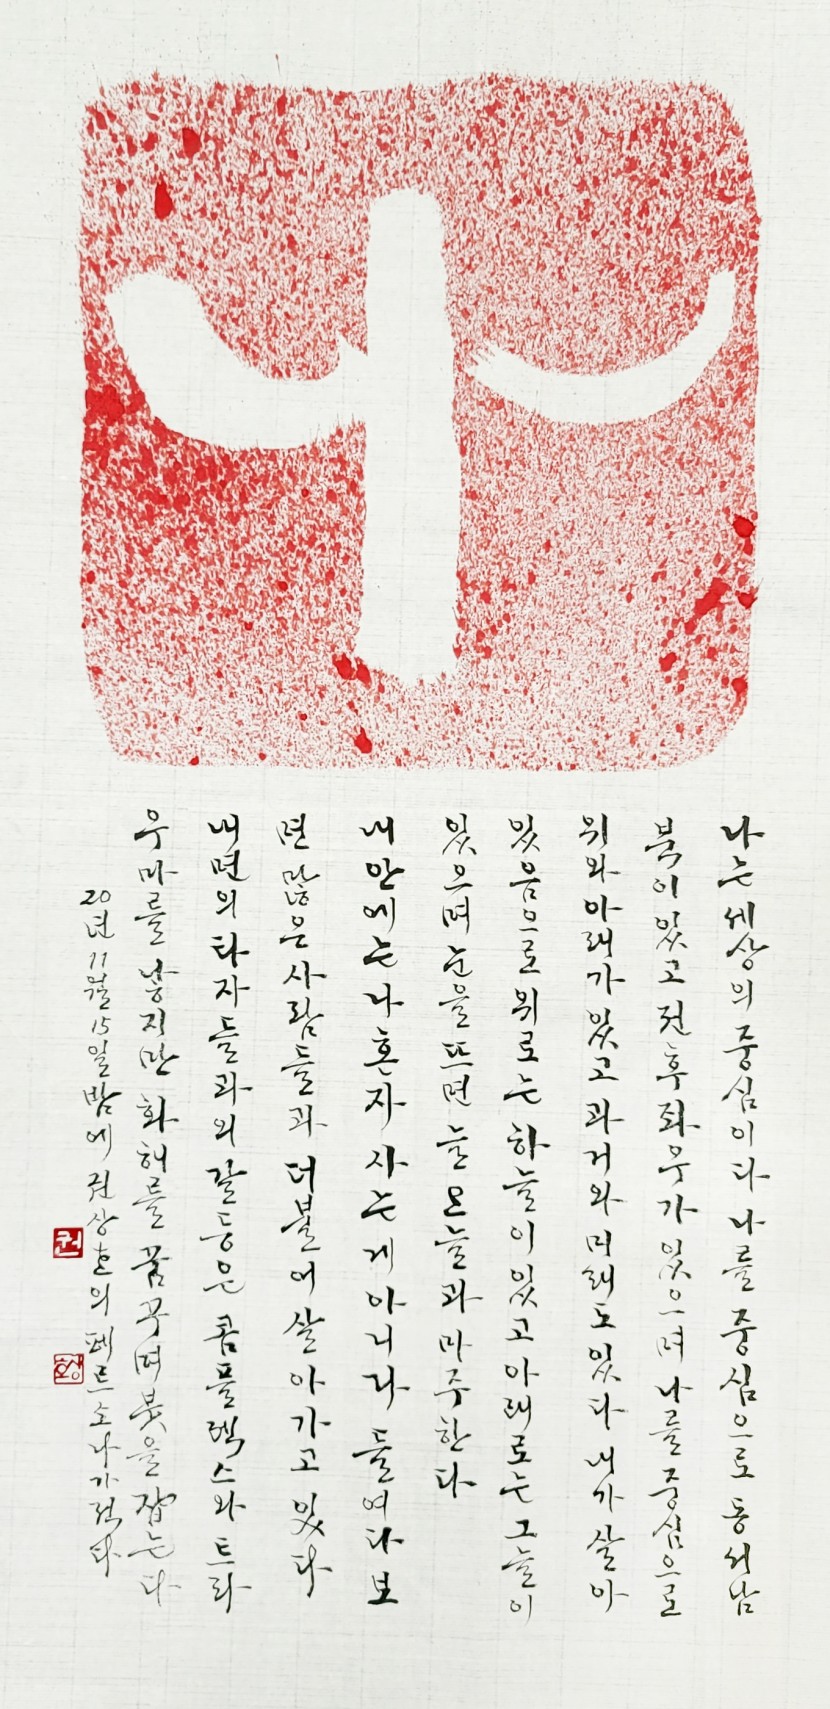 나는 세상의 중심이다 나를 중심으로 동서남
북이 있고 전후좌우가 있으며 나를 중심으로
위와 아래가 있고 과거와 미래도 있다 내가 살아
있음으로 위로는 하늘이 있고 아래로는 그늘이
있으며 눈을 뜨면 늘 오늘과 마주한다
내 안에는 나 혼자 사는 게 아니라 들여다보
면 많은 사람들과 더불어 살아가고 있다
내면의 타자들과의 갈등은 콤플렉스와 트라
우마를 낳지만 화해를 꿈꾸며 붓을 잡는다
20년 11월 15일 밤에 권상호의 페르소나가 적다
권